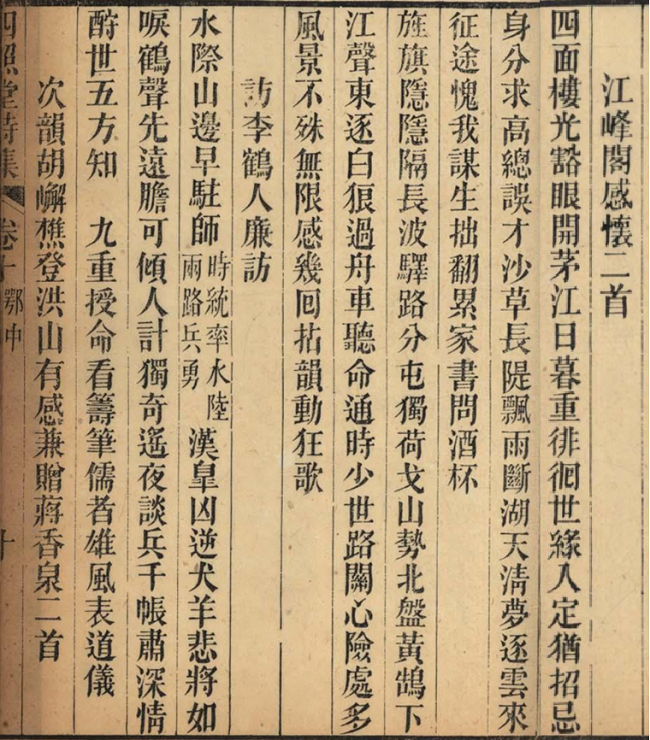 江峰閣感懷二首
四面樓光豁眼開茅江日暮重徘徊世緣入定猶招忌
身分求高總誤才沙草長隄飄雨斷湖天淸夢逐雲來
征途愧我謀生拙翻累家書問酒杯
旌旗隱隱隔長波驛路分屯獨荷戈山勢北盤黃鵠下
江聲東逐白狼過舟車聽命通時少世路關心險處多
風景不殊無限感幾回拈韻動狂歌
訪李鶴人廉訪
水際山邊早駐師時統率水陸兩路兵勇漢皐凶逆犬羊悲將如
唳鶴聲先遠膽可傾人計獨奇遙夜談兵千帳肅深情
酧世五方知　九重授命看籌筆儒者雄風表道儀
次韻胡嶰樵登洪山有感兼贈蔣香泉二首
四照堂詩集　卷十　鄂中　十